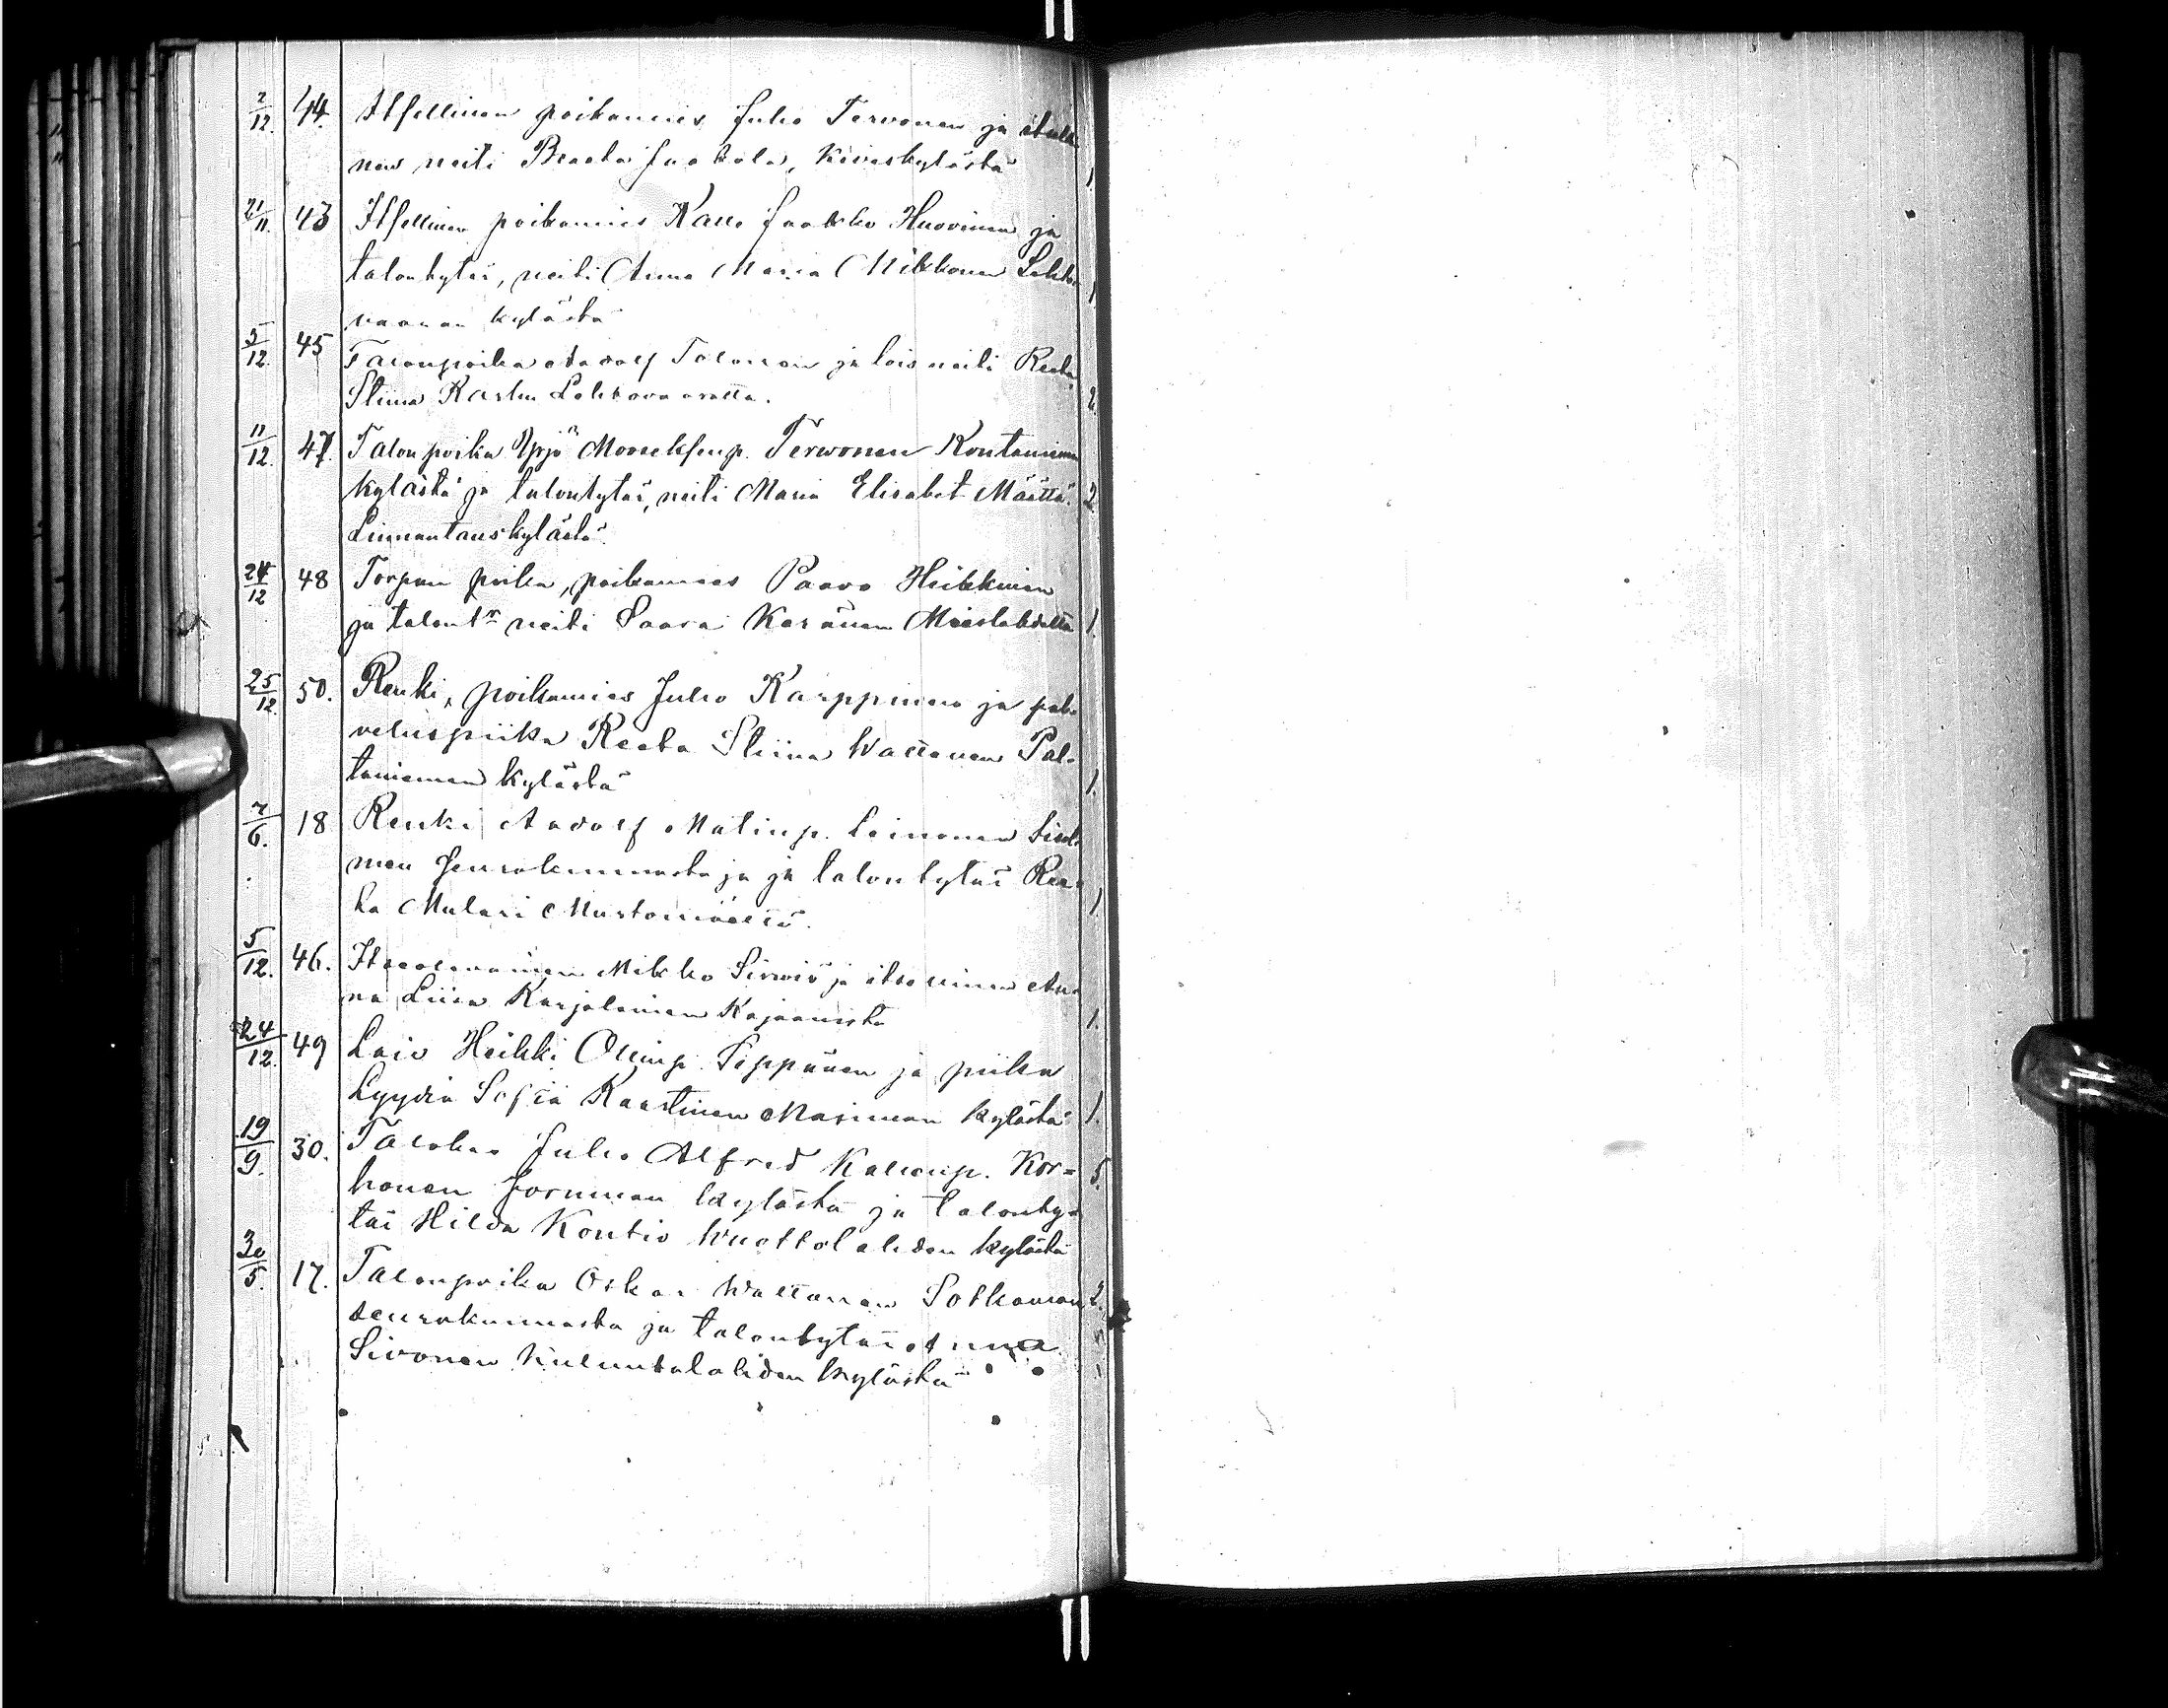 2/12. 44. Itsellinen poikamies Juho Tervonen ja itselli-
nen neiti Beata Jaakola, Kiveskylästä 1.
21/11. 43 Itsellinen poikamies Kalle Jaakko Huovinen ja
talontytär, neiti Anna Maria Mikkonen Lehto- 1
vaaran kylästä
5/12. 45 Talonpoika Aadolf Tolonen ja lois neiti Reeta
Stiina Karhu Lehtovaaralta. 2.
11/12. 47. Talonpoika Yrjö Mooseksenp. Terwonen Kontiomäen
kylästä ja talontytär, neiti Maria Elisabet Määttä 2
Liimantauskylästä.
24/12 48 Torpan poika, poikamies Paavo Heikkinen
ja talontr neiti Saara Keränen Mieslahdelta 1.
25/12. 50. Renki, poikamies Juho Karppinen ja pal-
veluspiika Reeta Stiina Wattanen Pal-
taniemen kylästä 1.
7/6. 18 Renki Aadolf Matinp. Leinonen Sived-
men seurakunnasta ja ja talontytär Ree-
ta Mulari Mustomäeltä. 1
5/12. 46. Itseellisnainen Mikko Sirviö ja itsellinen An-
na Liisa Karjalainen Kajaanista 1.
24/12. 49 Lois Heikki Ollinp. Seppänen ja piika
Lyydia Sofia Kaartinen Melaisten kylästä 1.
19/9. 30. Talokas Juho Alfred Kallenp. Kor= 5.
honen Jormuan kylästä ja talonty-
tär Hilda Kontio Wuottolahden kylästä
30/5. 17. Talonpoika Oskar Wattanen Sotkamon 2.
seurakunnasta ja talontytär Anna
Sivonen Kuluntalahden kylästä